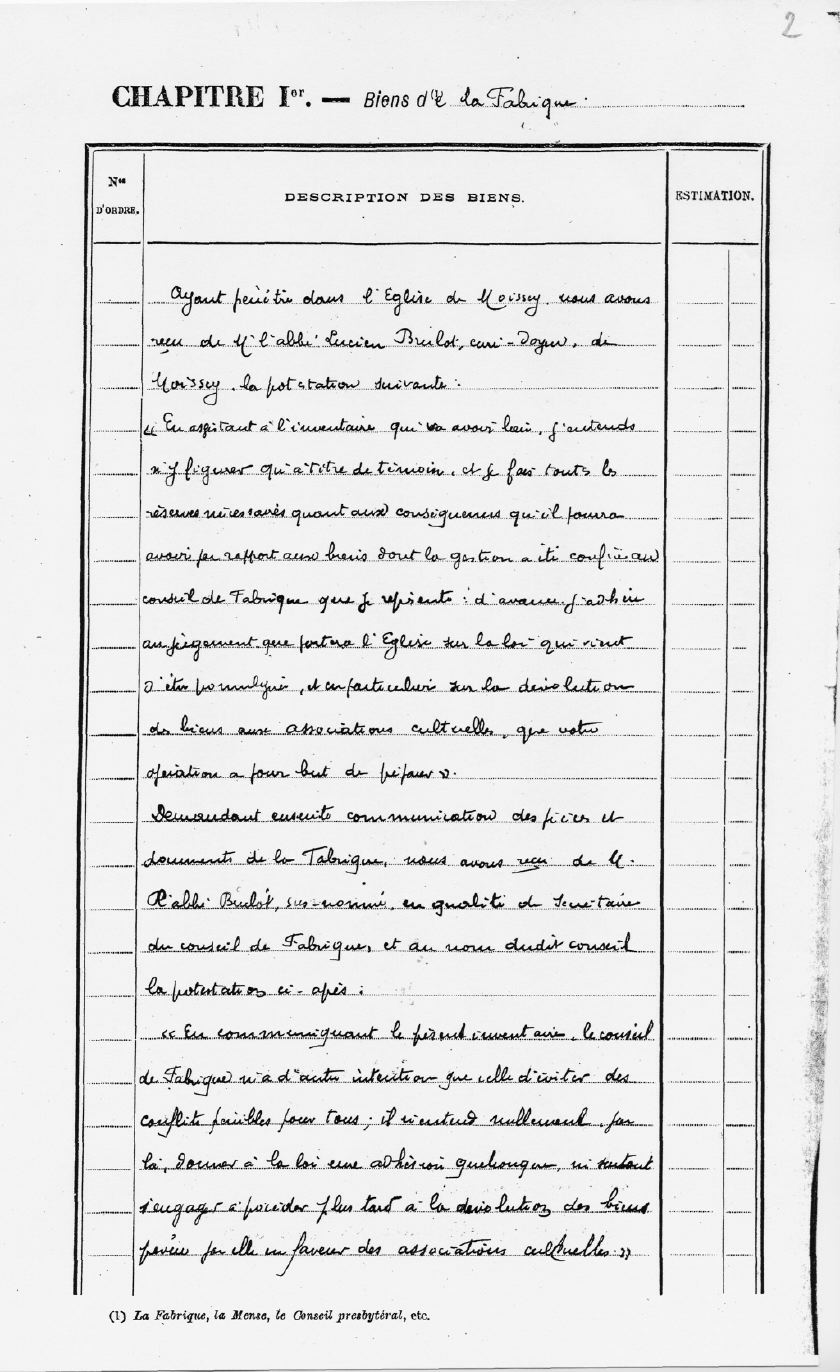 2
CHAPITRE Ier. — Biens de la Fabrique.
Nos
D'ORDRE.
DESCRIPTION DES BIENS.
ESTIMATION.
Ayant pénétré dans l'Eglise de Moissey, nous avons
reçu de Mr l'abbé Lucien Brulot, curé-Doyen, de
Moissey, la protestation suivante :
« En assistant à l'inventaire qui va avoir lieu, j'entends
n'y figurer qu'à titre de témoin, et je fais toutes les
réserves nécessaires quant aux conséquences qu'il pourra
avoir par rapport aux biens dont la gestion a été confiée au
conseil de Fabrique que je représente : d'avance j'adhère
au jugement que portera l'Eglise sur la loi qui vient
d'être promulguée, et en particulier sur la dévolution
des biens aux associations cultuelles, que votre
opération a pour but de préparer ».
Demandant ensuite communication des pièces et
documents de la Fabrique, nous avons reçu de M.
l'abbé Brulot, sus-nommé, en qualité de Secrétaire
du conseil de Fabrique, et au nom dudit conseil
la protestation ci-après :
« En communiquant le présent inventaire, le conseil
de Fabrique n'a d'autre intention que celle d'éviter des
conflits pénibles pour tous ; il n'entend nullement, par
là, donner à la loi une adhésion quelconque, ni surtout
s'engager à procéder plus tard à la dévolution des biens
prévue par elle en faveur des associations cultuelles »
(1) La Fabrique, la Mense, le Conseil presbytéral, etc.